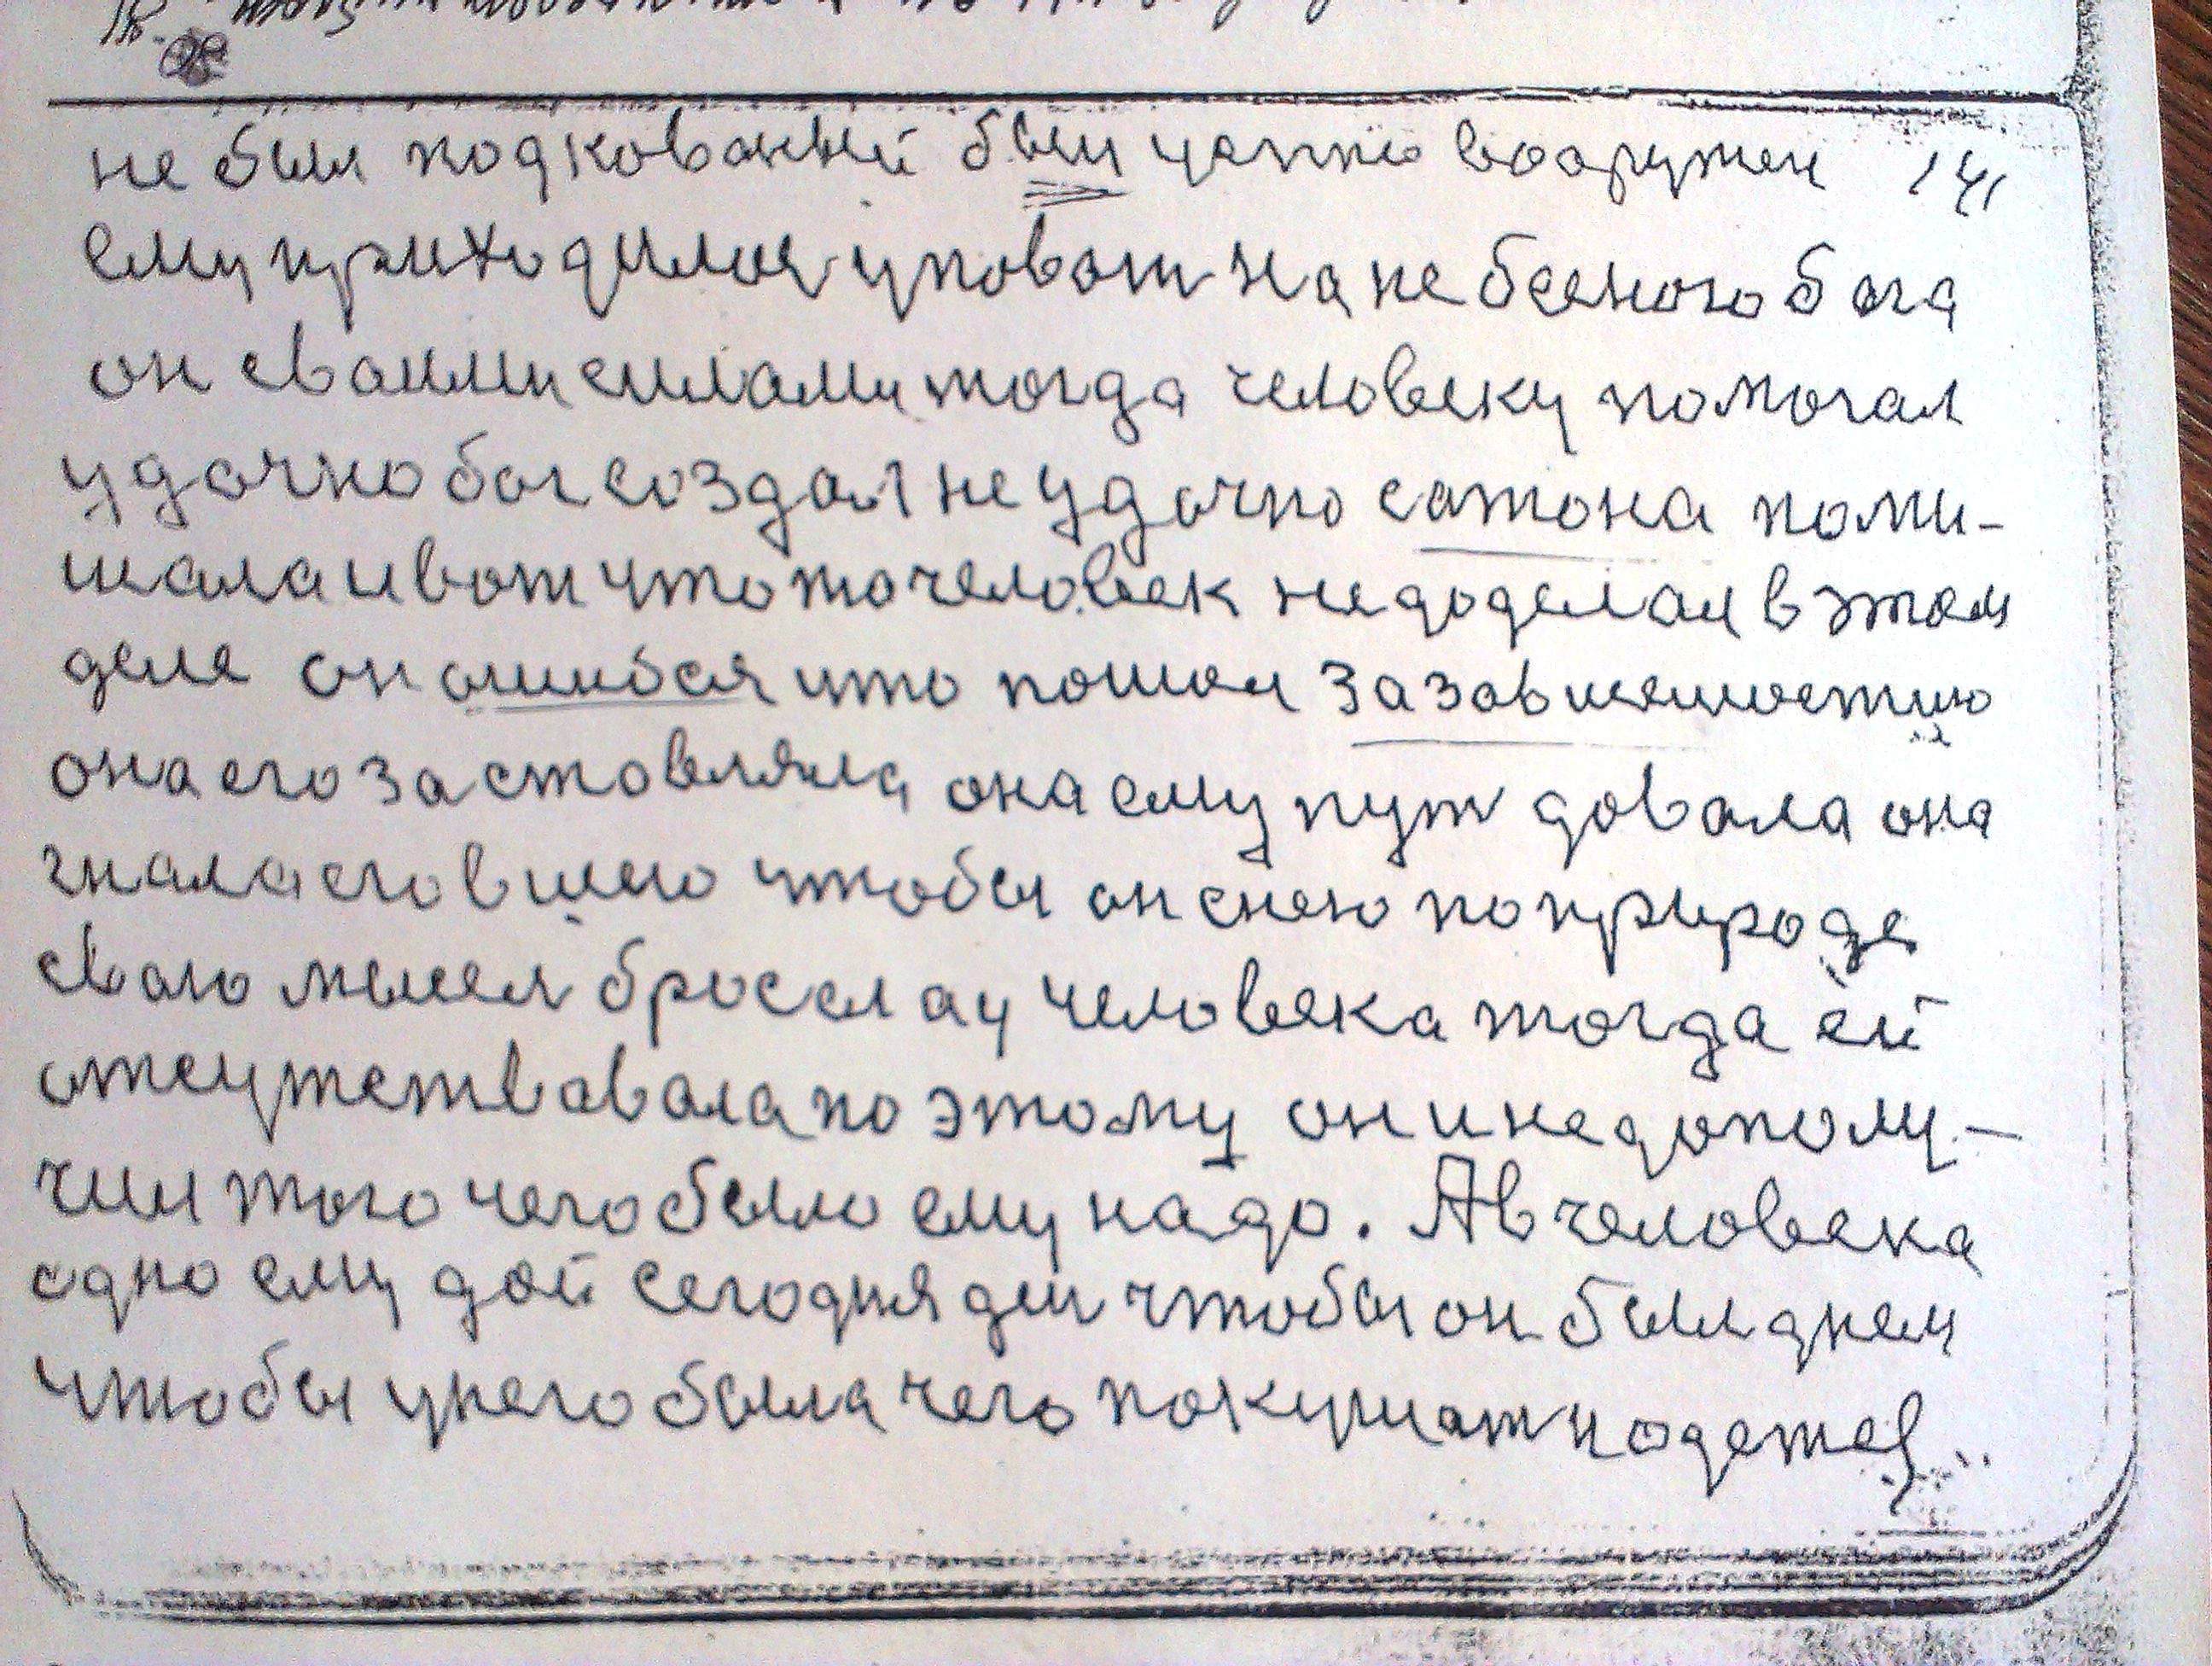 не был подкованный был цепко вооружен 141
ему приходилос уповат на небесного бога
он своими силами тогда человеку помогал
удачно бог создал неудачно сатона поми-
шала и вот что то человек недоделал в этом
деле он ошибся что пошол за зависимостию
она его заставляла она ему пут довала она
гнала его в шею чтобы он с нею по природе
сваю мысел бросел а у человека тогда ей
отсутствавала по этому он и не дополу-
чил того чего было ему надо. А в человека
одно ему дай сегодня ден чтобы он был днем
чтобы у него была чего покушат и одетса